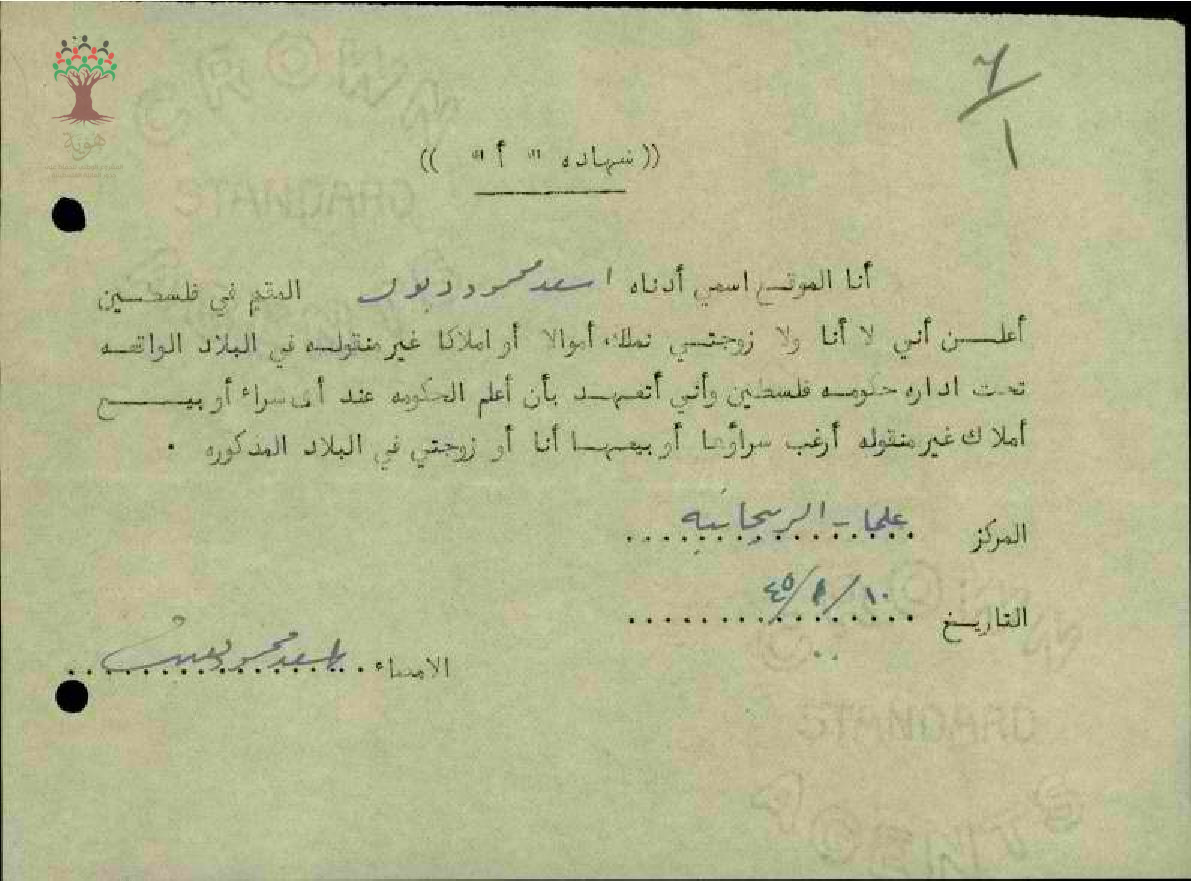 ٦/١
هوية
((شهاده " أ " ))
أنا الموقع اسمي أدناه اسعد محمود المقيم في فلسطين
أعلن أني لا أنا ولا زوجتي نملك أموالا أو املاكا غير منقوله في البلاد الواقعه
تحت اداره حكومه فلسطين وأني أتعهد بأن أعلم الحكومه عند أى شراء أو بيع
أملاك غير منقوله أرغب شراؤها أو بيعها أنا أو زوجتي في البلاد المذكوره .
المركز الريحانيه
التاريخ ١٠/ /٤٥
الامضاء اسعد محمود
CROWN